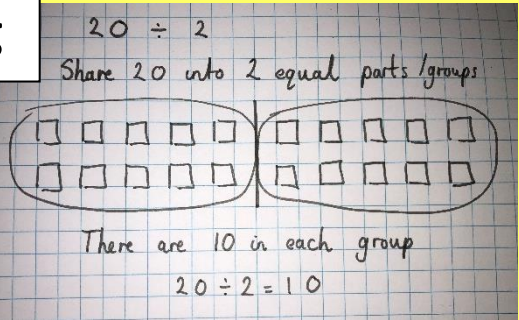 20 ÷ 2
Share 20 into 2 equal parts/groups
There are 10 in each group
20 ÷ 2 = 10